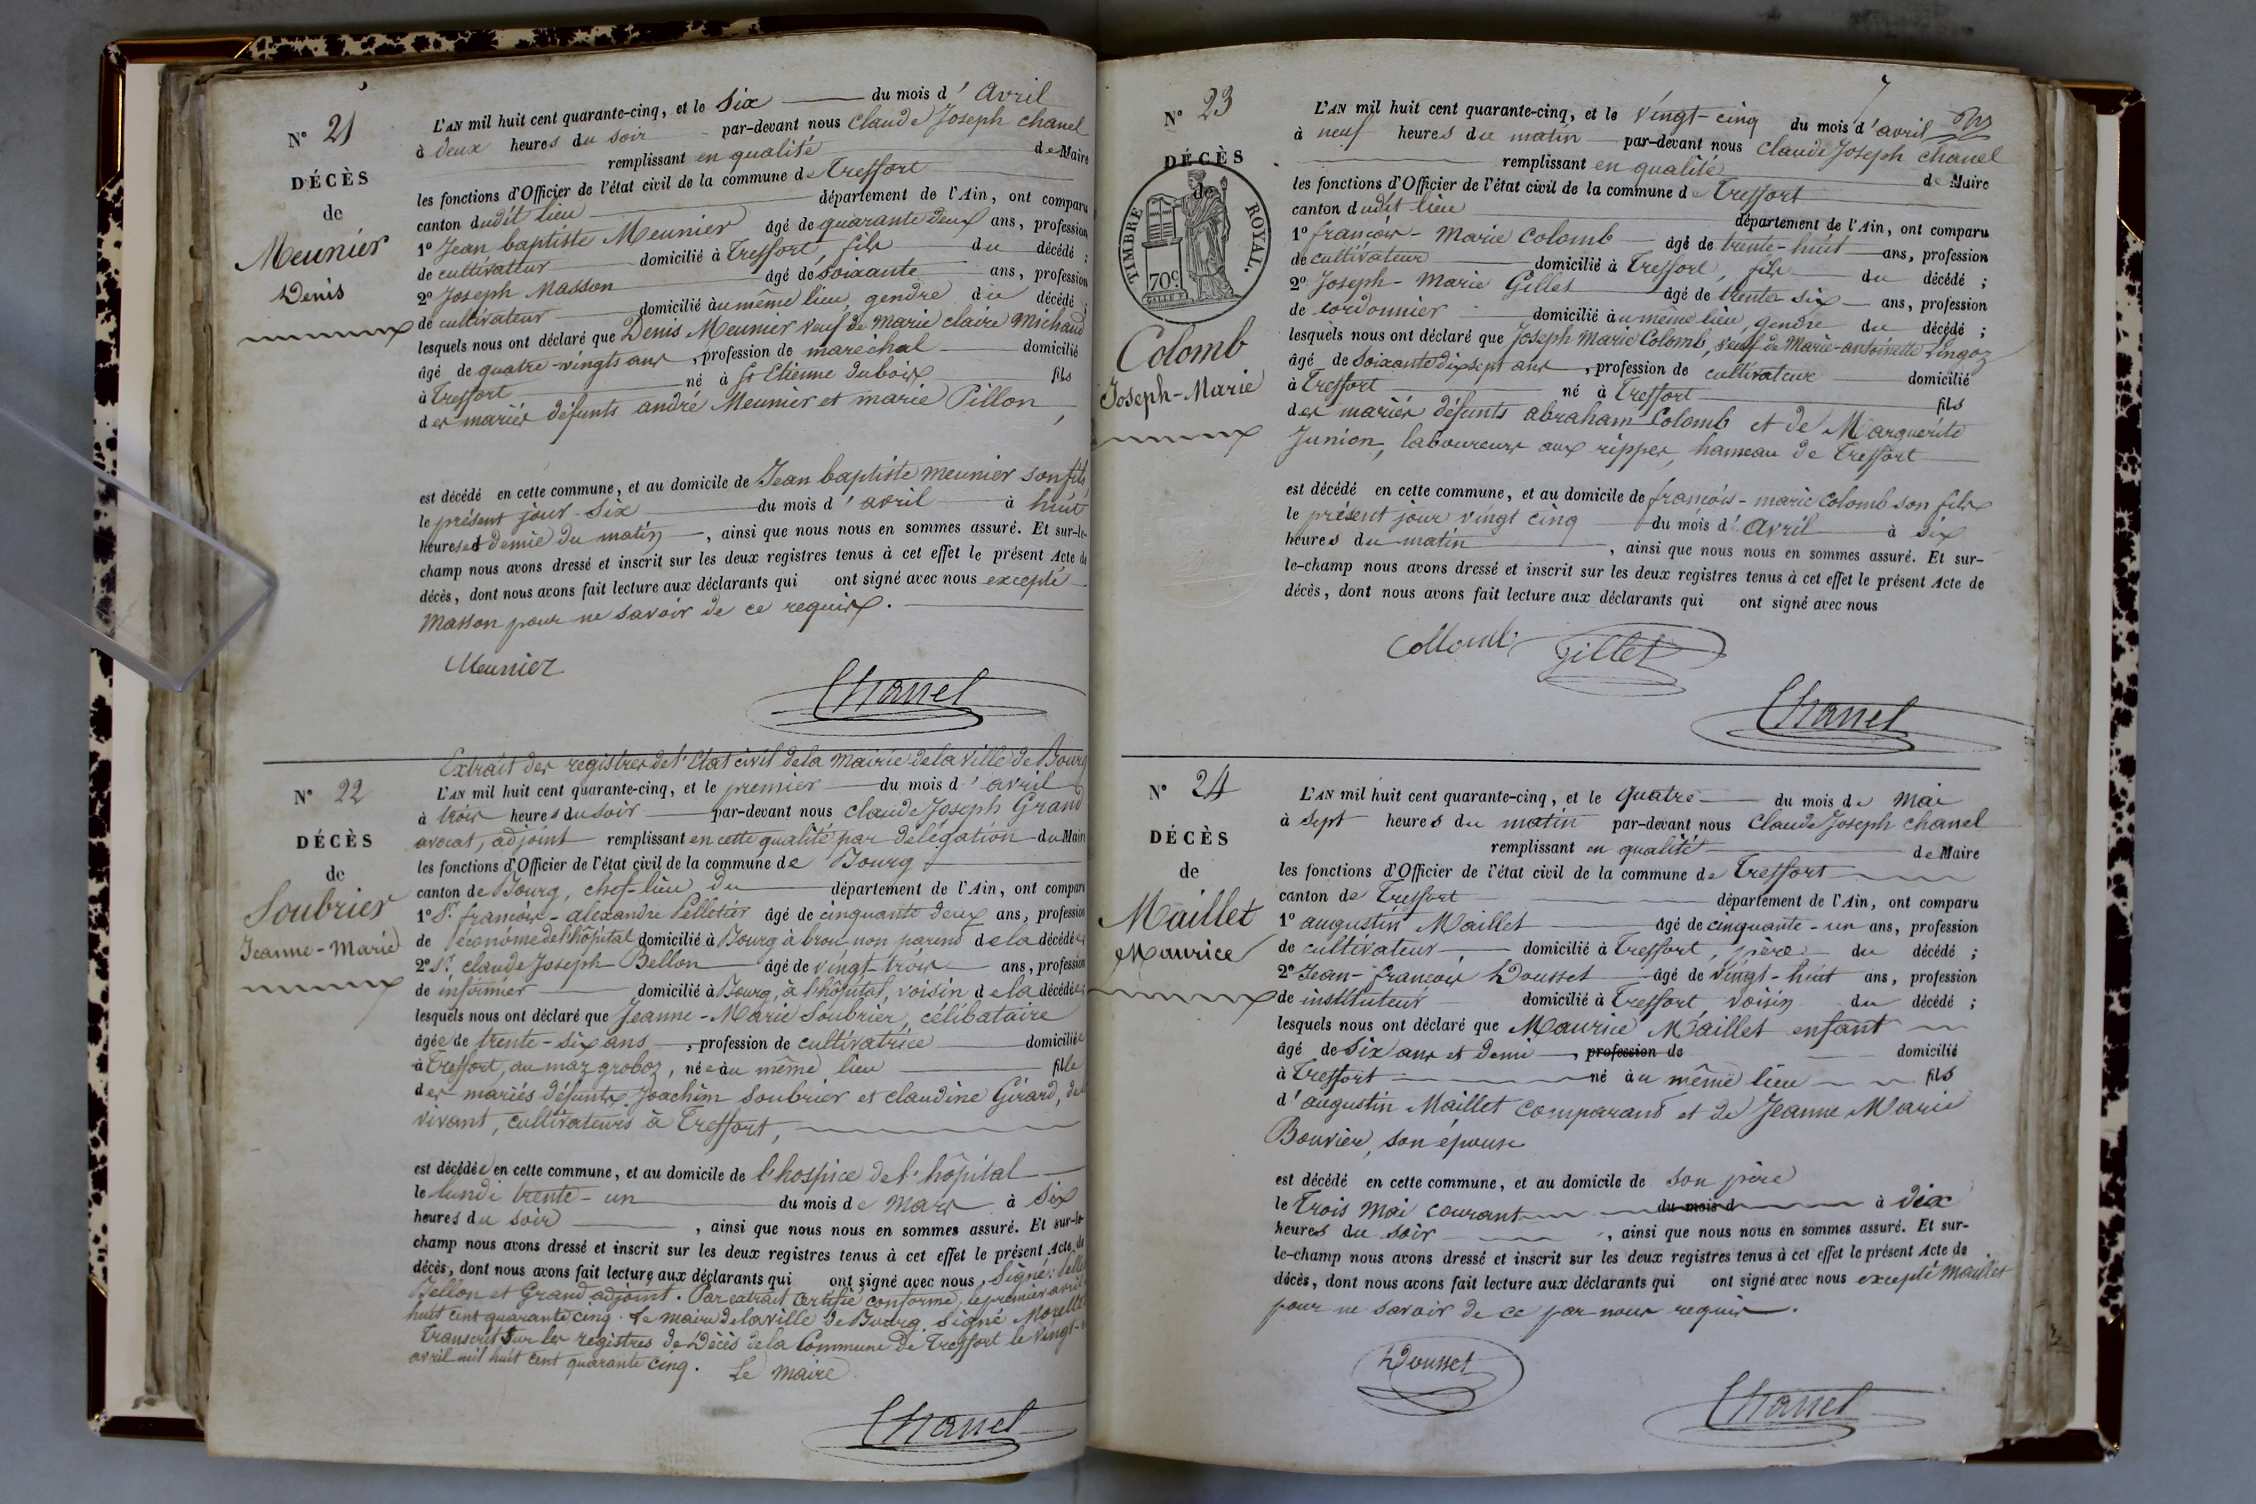 N° 21
DÉCÈS
de
Meunier
Denis
L'AN mil huit cent quarante-cinq, et le six du mois d'avril
à deux heures du soir par-devant nous Claude Joseph Chanel
remplissant en qualité de Maire
les fonctions d'Officier de l'état civil de la commune de Treffort
canton dudit lieu département de l'Ain, ont comparu
1° Jean baptiste Meunier âgé de quarante deux ans, profession
de cultivateur domicilié à Treffort, fils du décédé ;
2° Joseph Masson âgé de soixante ans, profession
de cultivateur domicilié au même lieu, gendre du décédé ;
lesquels nous ont déclaré que Denis Meunier veuf de Marie Claire Michaud
âgé de quatre-vingts ans, profession de maréchal domicilié
à Treffort né à St Etienne dubois fils
des mariés défunts andré Meunier et marie Pillon,
est décédé en cette commune, et au domicile de Jean baptiste meunier son fils
le présent jour six du mois d'avril à huit
heures et demie du matin, ainsi que nous nous en sommes assuré. Et sur-le-
champ nous avons dressé et inscrit sur les deux registres tenus à cet effet le présent Acte de
décès, dont nous avons fait lecture aux déclarants qui ont signé avec nous excepté
Masson pour ne savoir de ce requis.
Meunier
Chanel
N° 22
DÉCÈS
de
Soubrier
Jeanne-Marie
Extrait des registres de l'Etat civil de la Mairie de la ville de Bourg
L'AN mil huit cent quarante-cinq, et le premier du mois d'avril
à trois heures du soir par-devant nous Claude Joseph Grand
avocat, adjoint remplissant en cette qualité par délégation du Maire
les fonctions d'Officier de l'état civil de la commune de Bourg
canton de Bourg, chef-lieu du département de l'Ain, ont comparu
1° Sr. françois-alexandre Pelletier âgé de cinquante deux ans, profession
de économe de l'hôpital domicilié à Bourg à brou non parent de la décédée ;
2° Sr. claude Joseph Bellon âgé de vingt-trois ans, profession
de infirmier domicilié à Bourg, à l'hôpital, voisin de la décédée ;
lesquels nous ont déclaré que Jeanne-Marie Soubrier, célibataire
âgée de trente-six ans, profession de cultivatrice domiciliée
à Treffort, au maz groboz, née au même lieu fille
des mariés défunts Joachim Soubrier et claudine Girard, de
vivant, cultivateurs à Treffort,
est décédée en cette commune, et au domicile de l'hospice de l'hôpital
le lundi trente-un du mois de Mars à six
heures du soir, ainsi que nous nous en sommes assuré. Et sur-le-
champ nous avons dressé et inscrit sur les deux registres tenus à cet effet le présent Acte de
décès, dont nous avons fait lecture aux déclarants qui ont signé avec nous, Signé:
Bellon et Grand adjoint. Par extrait certifié conforme, le premier avril
huit cent quarante cinq. Le maire de la ville de Bourg, signé
Transcrit sur les registres de Décès de la Commune de Treffort le vingt-
avril mil huit cent quarante cinq. Le Maire
Chanel
7
N° 23
DÉCÈS
de
TIMBRE ROYAL.
70c.
Colomb
Joseph-Marie
L'AN mil huit cent quarante-cinq, et le vingt-cinq du mois d'avril
à neuf heures du matin par-devant nous Claude Joseph Chanel
remplissant en qualité de Maire
les fonctions d'Officier de l'état civil de la commune de Treffort
canton dudit lieu département de l'Ain, ont comparu
1° françois-Marie Colomb âgé de trente-huit ans, profession
de cultivateur domicilié à Treffort, fils du décédé ;
2° Joseph-Marie Gillet âgé de trente six ans, profession
de cordonnier domicilié au même lieu, gendre du décédé ;
lesquels nous ont déclaré que Joseph Marie Colomb, veuf de Marie-antoinette
âgé de soixante dix sept ans, profession de cultivateur domicilié
à Treffort né à Treffort fils
des mariés défunts abraham Colomb et de Marguerite
Junion, laboureurs aux rippes, hameau de Treffort
est décédé en cette commune, et au domicile de françois-marie Colomb son fils
le présent jour vingt cinq du mois d'avril à six
heures du matin, ainsi que nous nous en sommes assuré. Et sur-
le-champ nous avons dressé et inscrit sur les deux registres tenus à cet effet le présent Acte de
décès, dont nous avons fait lecture aux déclarants qui ont signé avec nous
Collomb Gillet
Chanel
N° 24
DÉCÈS
de
Maillet
Maurice
L'AN mil huit cent quarante-cinq, et le quatre du mois de Mai
à sept heures du matin par-devant nous Claude Joseph Chanel
remplissant en qualité de Maire
les fonctions d'Officier de l'état civil de la commune de Treffort
canton de Treffort département de l'Ain, ont comparu
1° augustin Maillet âgé de cinquante-un ans, profession
de cultivateur, domicilié à Treffort, père du décédé ;
2° Jean-françois Dousset âgé de vingt-huit ans, profession
de instituteur domicilié à Treffort voisin du décédé ;
lesquels nous ont déclaré que Maurice Maillet enfant
âgé de six ans et demi, profession de domicilié
à Treffort né au même lieu fils
d'augustin Maillet comparant et de Jeanne Marie
Bouvier, son épouse
est décédé en cette commune, et au domicile de son père
le trois Mai courant du mois d à dix
heures du soir, ainsi que nous nous en sommes assuré. Et sur-
le-champ nous avons dressé et inscrit sur les deux registres tenus à cet effet le présent Acte de
décès, dont nous avons fait lecture aux déclarants qui ont signé avec nous excepté Maillet
pour ne savoir de ce par nous requis.
Dousset
Chanel